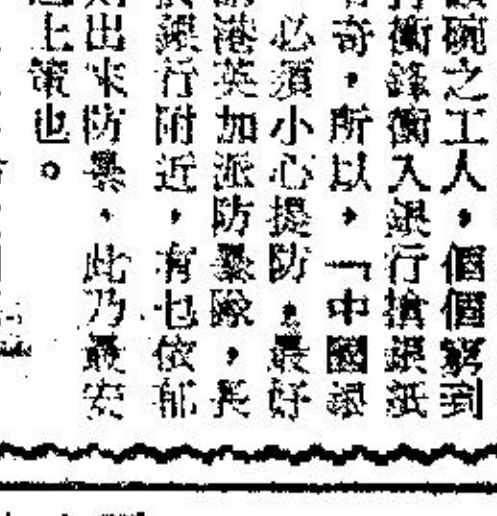 碗之工人，個個窮到
衝鋒衝入銀行搶銀紙
奇，所以，「中國銀
必須小心提防，最好
港英加派防暴隊，長
銀行附近，有乜依郁
出來防暴，此乃最安
上策也。